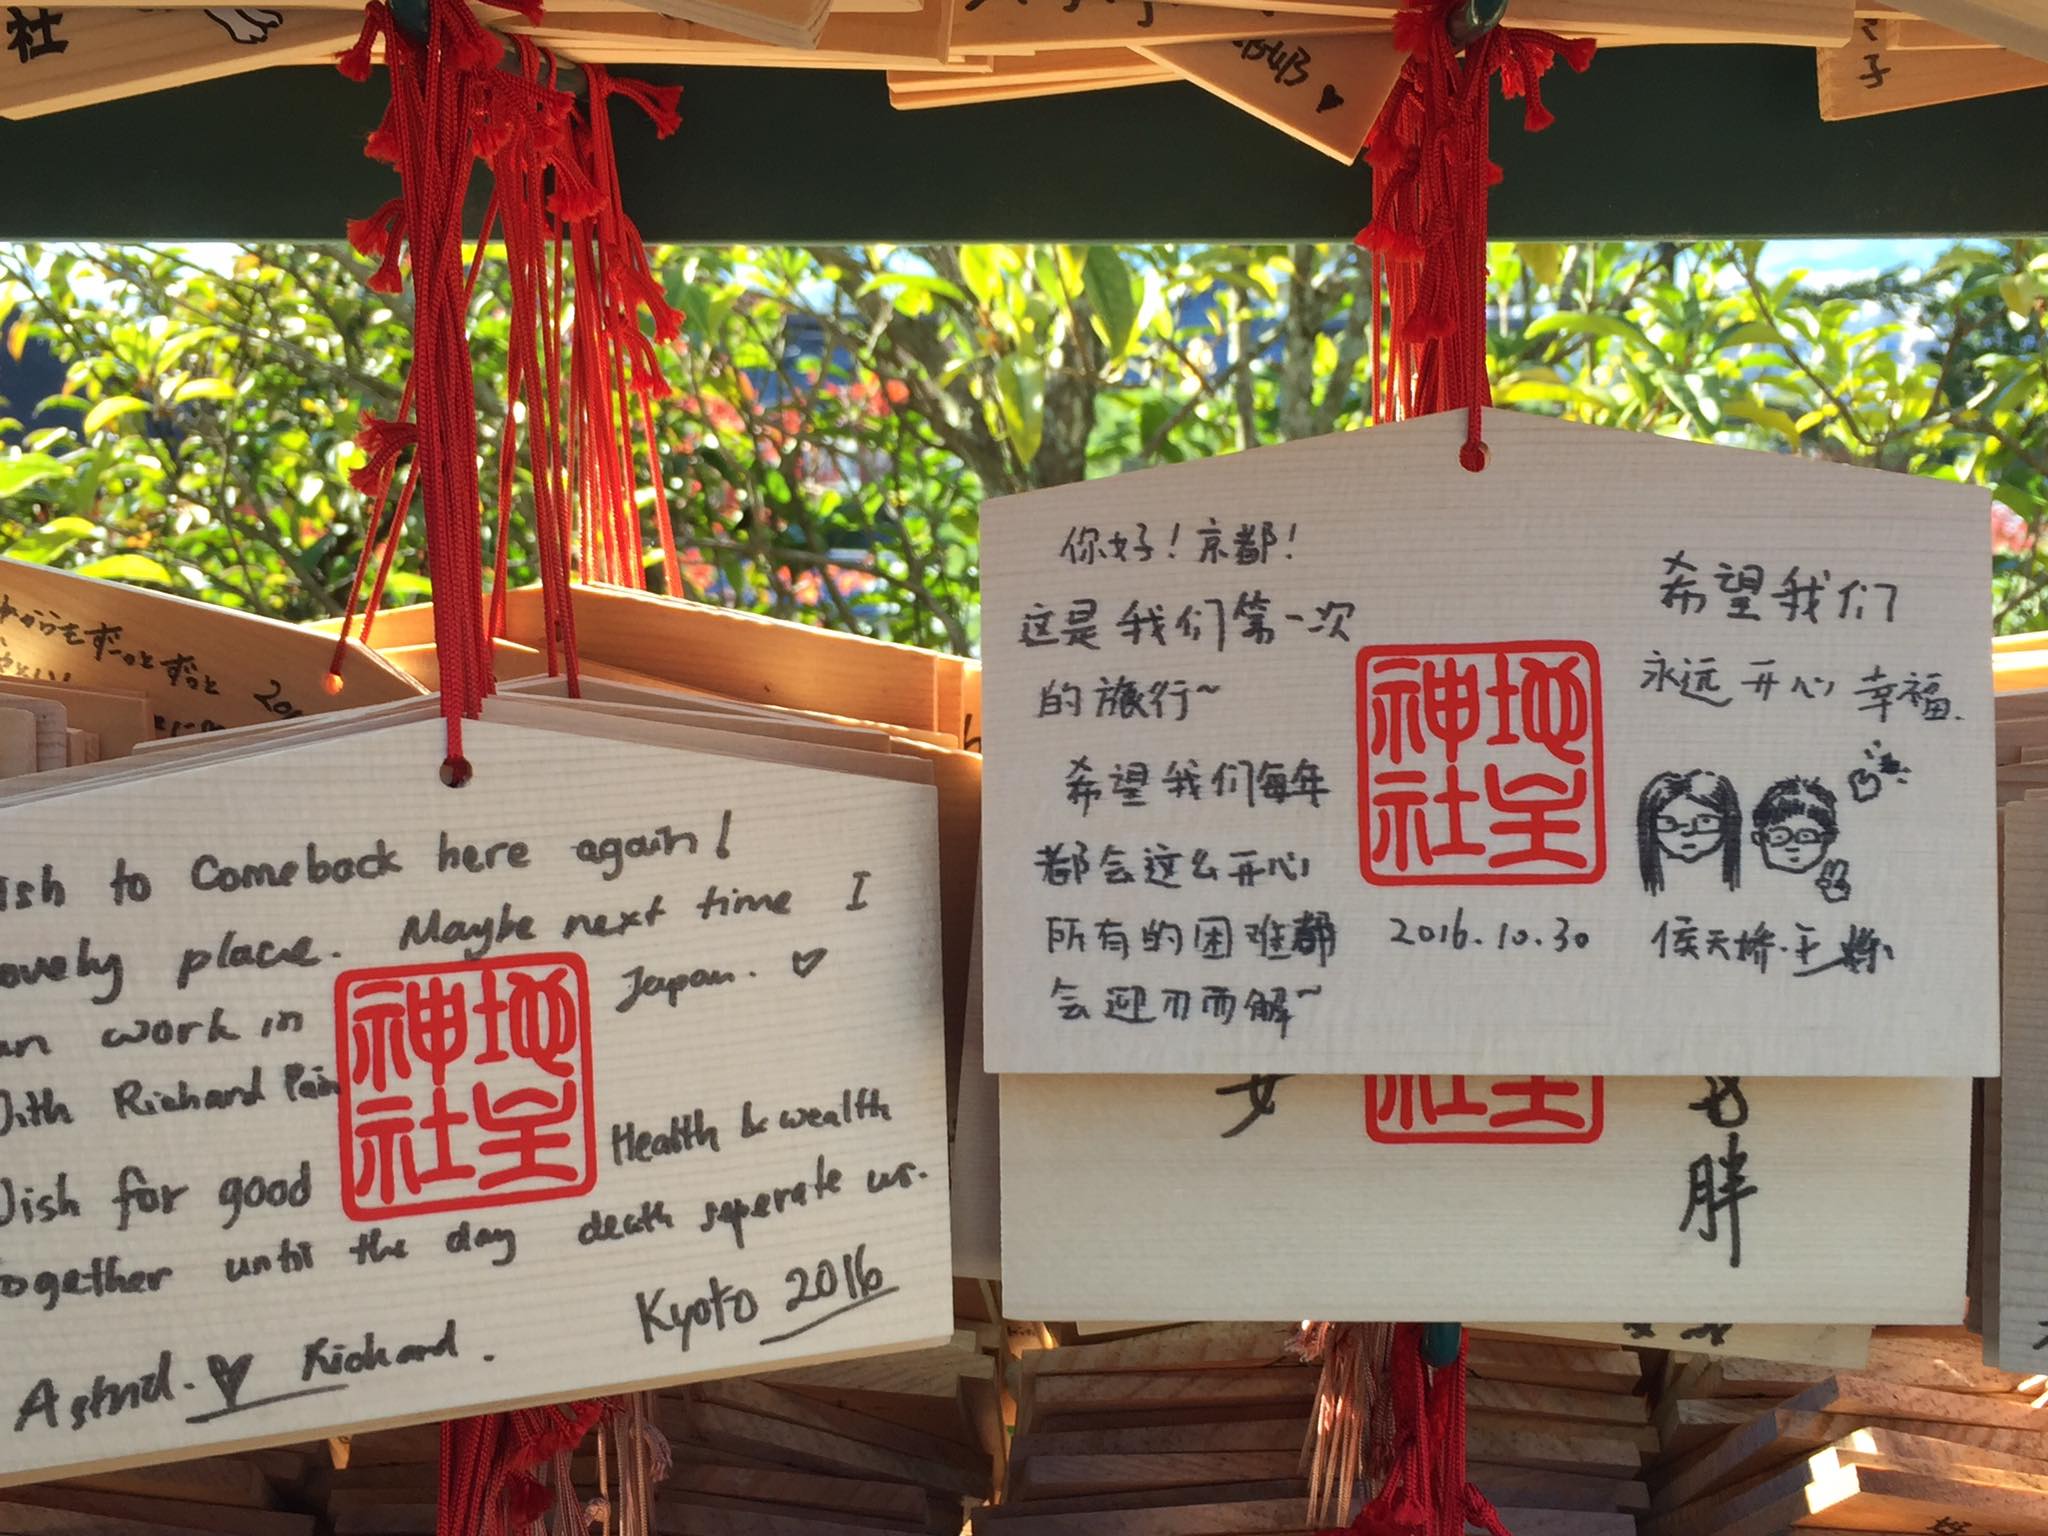 社
子
ish to Comeback here again!
ovely place. Maybe next time I
an work in Japan. ♡
With Richard
Wish for good Health & wealth
together until the day death seperate us.
Astrid. ♥ Richard.
Kyoto 2016
地主
神社
你好！京都！
这是我们第一次
的旅行~
希望我们每年
都会这么开心
所有的困难都
会迎刃而解~
地主
神社
2016.10.30
希望我们
永远开心幸福.
侯天桥.王
胖
からもずっとずっと